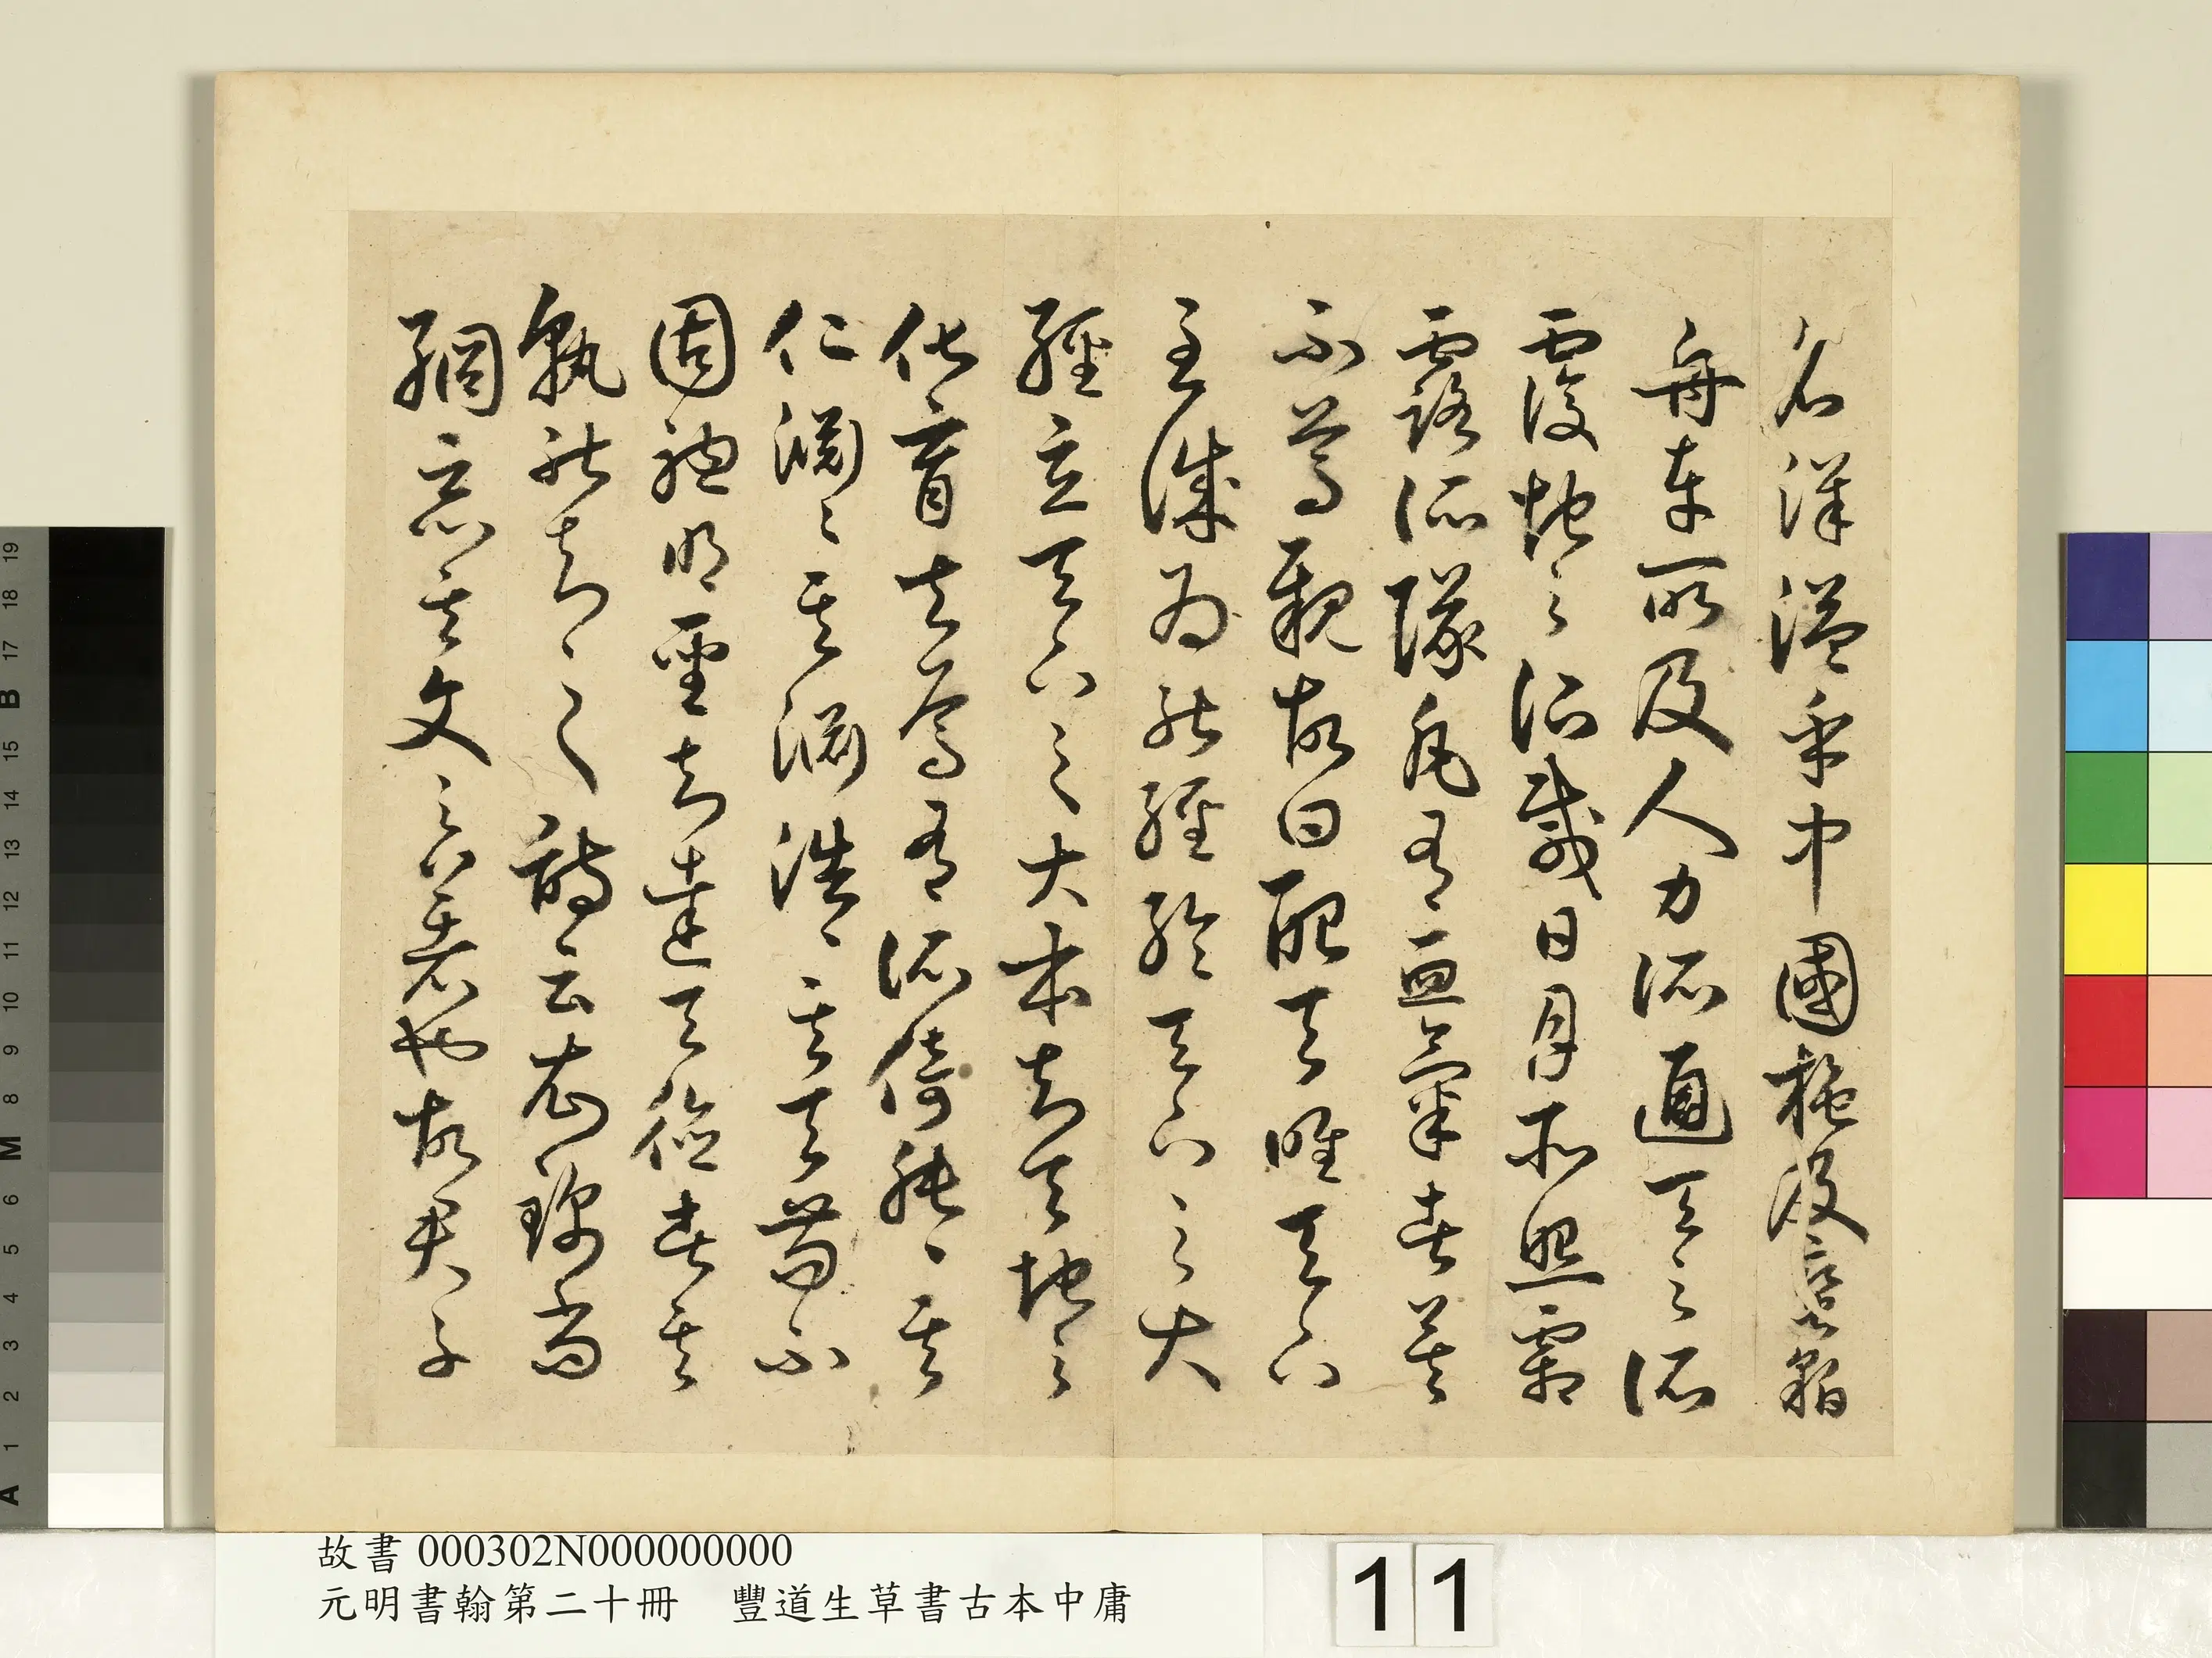 名洋溢乎中國施及蠻貊
舟車所及人力所通天之所
覆地之所載日月所照霜
露所隊凡有血氣者莫
不尊親故曰配天唯天下
至誠為能經綸天下之大
經立天下之大本知天地之
化育夫焉有所倚肫〻其
仁淵〻其淵浩〻其天苟不
固聰明聖知達天德者其
孰能知之詩云衣錦尚
絅惡其文之著也故君子
故書 000302N000000000
元明書翰第二十冊　豐道生草書古本中庸
11
A 1 2 3 4 5 6 M 8 9 10 11 12 13 14 15 B 17 18 19